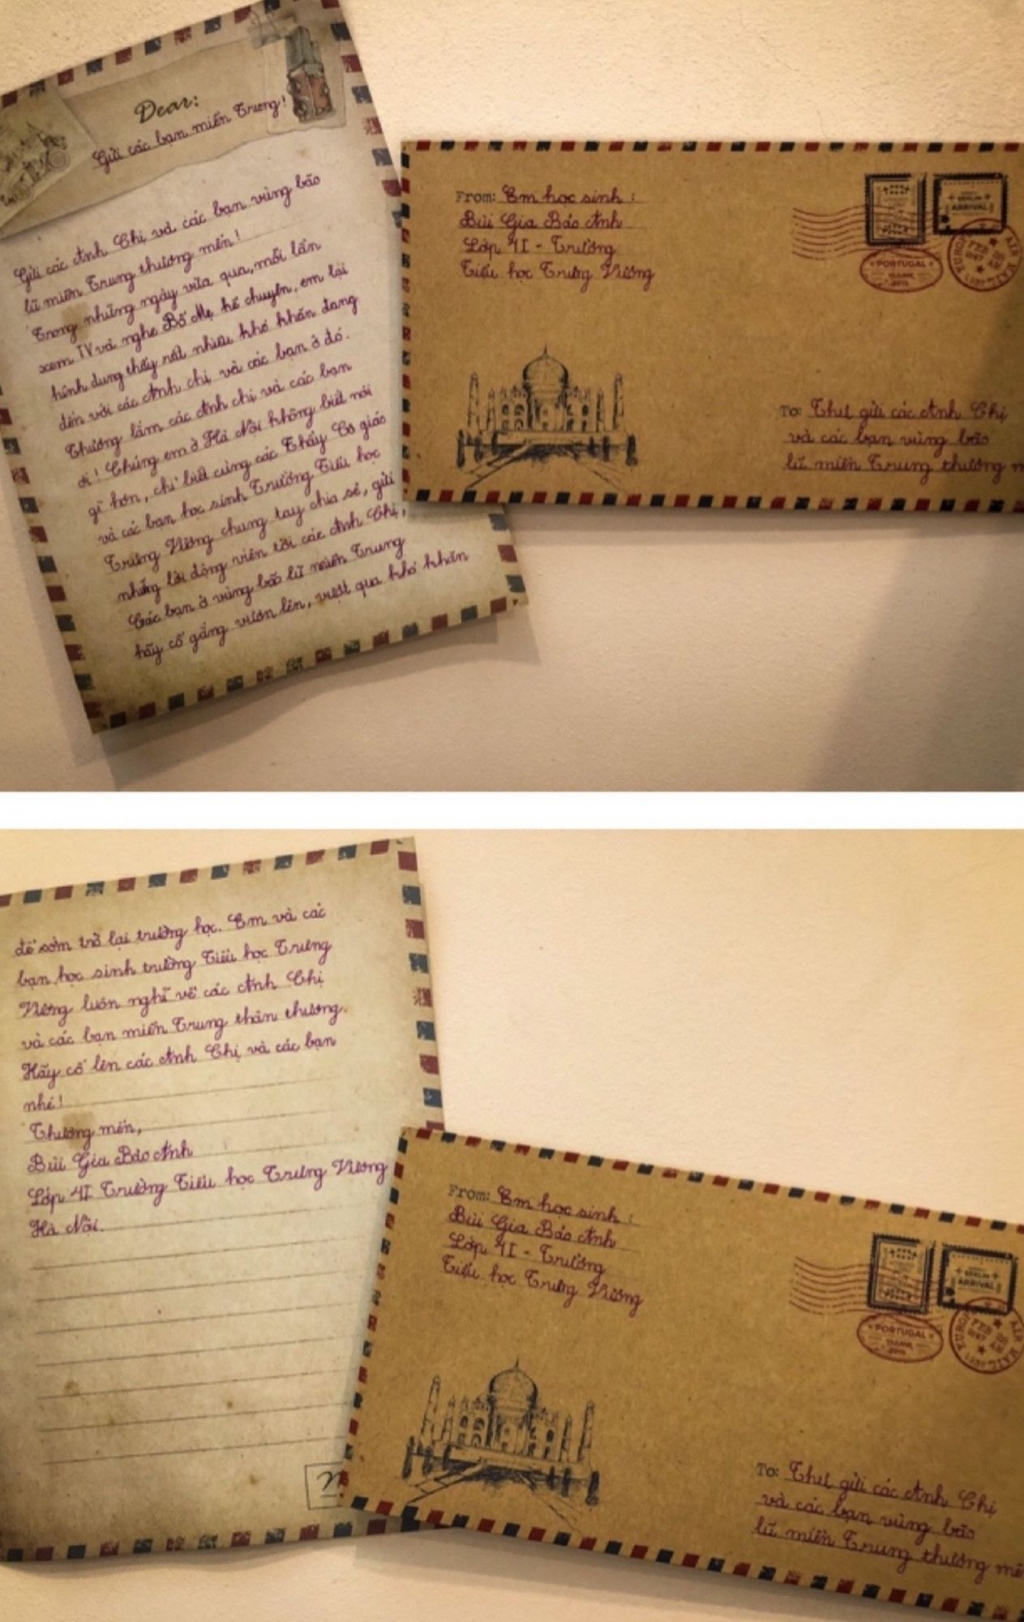 Dear:
Gửi các bạn miền Trung!
Gửi các Anh Chị và các bạn vùng bão
lũ miền Trung thương mến!
Trong những ngày vừa qua, mỗi lần
xem TV và nghe Bố Mẹ kể chuyện, em lại
hình dung thấy rất nhiều khó khăn đang
đến với các Anh chị và các bạn ở đó.
Thương lắm các Anh chị và các bạn
ơi! Chúng em ở Hà Nội không biết nói
gì hơn, chỉ biết cùng các Thầy Cô giáo
và các bạn học sinh Trường Tiểu học
Trưng Vương chung tay chia sẻ, gửi
những lời động viên tới các Anh Chị,
Các bạn ở vùng bão lũ miền Trung
hãy cố gắng vươn lên, vượt qua khó khăn
From: Em học sinh:
Bùi Gia Bảo Anh
Lớp 4I - Trường
Tiểu học Trưng Vương
BERLIN
ARRIVAL
PORTUGAL
To: Thư gửi các Anh Chị
và các bạn vùng bão
lũ miền Trung thương m
để sớm trở lại trường học. Em và các
bạn học sinh trường Tiểu học Trưng
Vương luôn nghĩ về các Anh Chị
và các bạn miền Trung thân thương.
Hãy cố lên các Anh Chị và các bạn
nhé!
Thương mến,
Bùi Gia Bảo Anh
Lớp 4I Trường Tiểu học Trưng Vương
Hà Nội.
From: Em học sinh:
Bùi Gia Bảo Anh
Lớp 4I - Trường
Tiểu học Trưng Vương
BERLIN
ARRIVAL
PORTUGAL
AIR MAIL
To: Thư gửi các Anh Chị
và các bạn vùng bão
lũ miền Trung thương mế